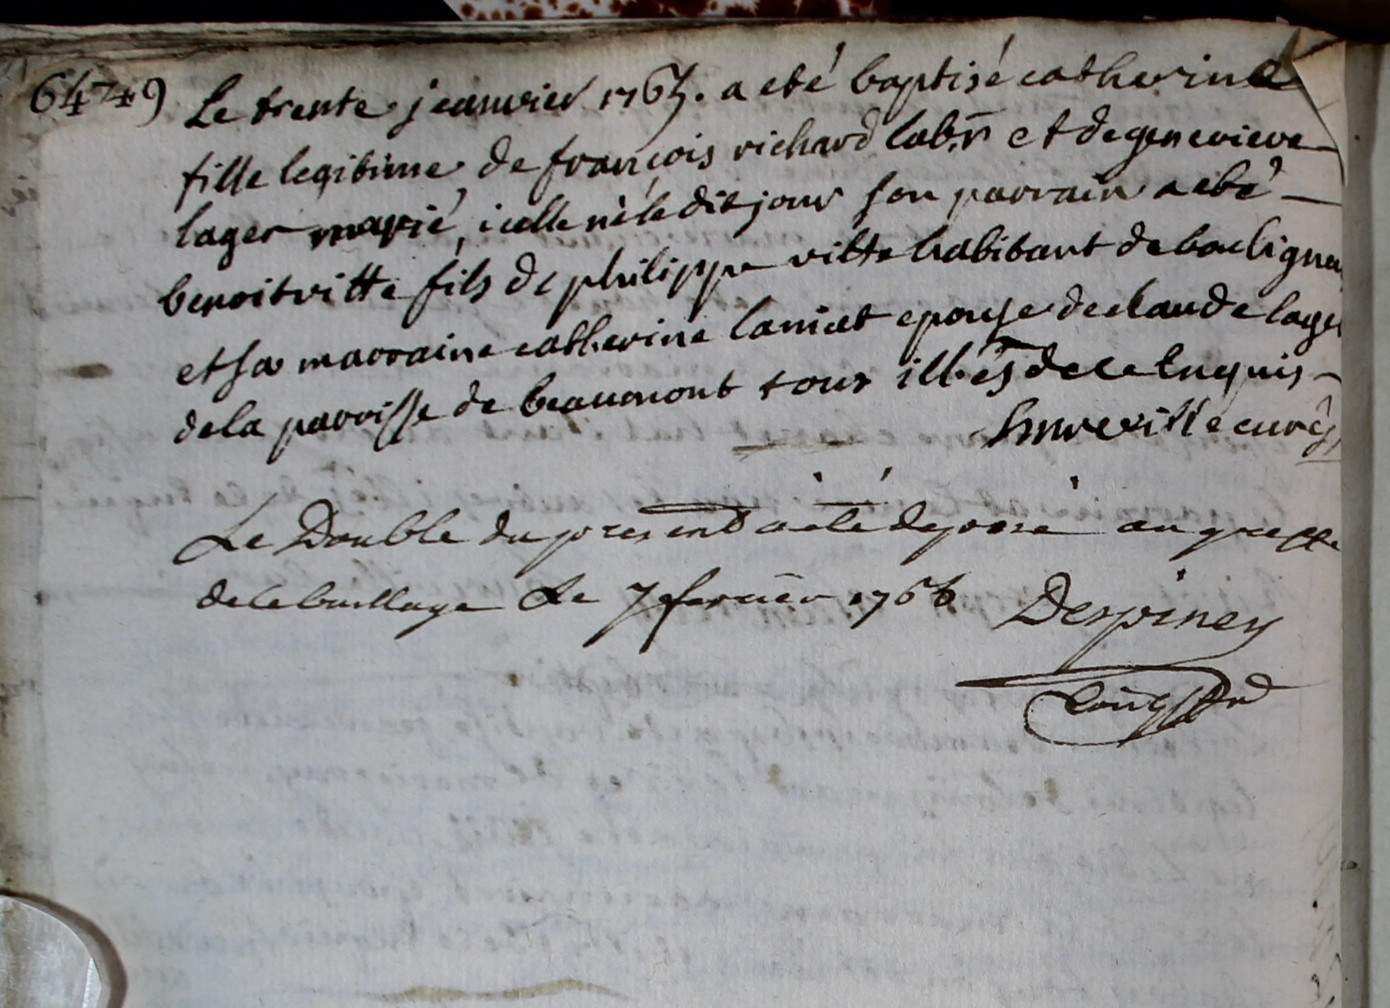 64749
Le trente jeanvier 1765. a eté baptisé catherine
fille legitime de françois richard lab.r et de genevieve
lager marié, icelle néé le dit jour son parrain a eté
benoit vitte fils de philippe vitte habitant de bouligneu
et sa marraine catherine laniat epouse de claude lager
de la paroisse de beaumont tous illéS de ce enquis
curé
Le Double du present a eté deposé au greffe
de ce baillage Le 7 fevrier 1766 Despiney